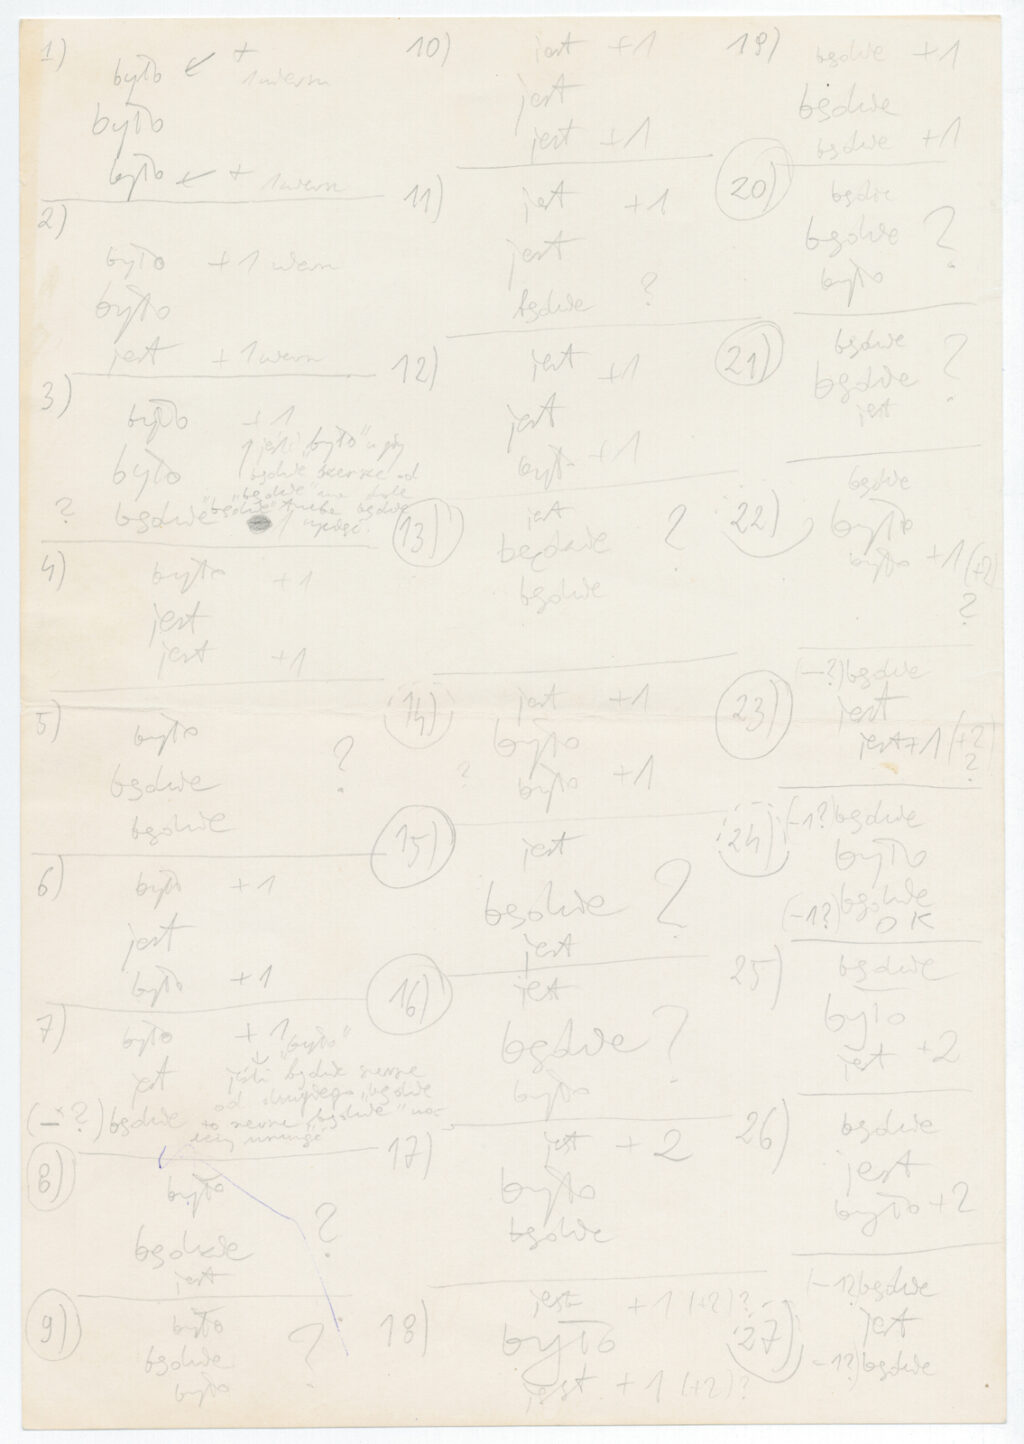 1)
było ← + 1 wiersz
było
było ← + 1 wiersz
2)
było + 1 wiersz
było
jest + 1 wiersz
3)
było + 1
było jeśli "było" u góry
będzie szersze od
"będzie" na dole
? będzie trzeba będzie
4)
było + 1
jest
jest + 1
5)
było
będzie ?
będzie
6)
było + 1
jest
było + 1
7)
było + 1 "było"
jest jeśli będzie szersze
od drugiego "będzie
(- ?) będzie to "będzie"
8)
było
będzie ?
jest
9)
było
będzie ?
było
10)
jest + 1
jest
jest + 1
11)
jest + 1
jest
będzie ?
12)
jest + 1
jest
było + 1
13)
jest
będzie ?
będzie
14)
jest + 1
było
? było + 1
15)
jest
będzie ?
jest
16)
jest
będzie ?
było
17)
jest + 2
było
będzie
18)
jest + 1 (+2)?
było
jest + 1 (+2)?
19)
będzie + 1
będzie
będzie + 1
20)
będzie
będzie ?
było
21)
będzie
będzie ?
jest
22)
będzie
było
było + 1 (+2)
?
23)
(-?) będzie
jest
jest + 1 (+2)
?
24)
(-1?) będzie
było
(-1?) będzie
OK
25)
będzie
było
jest + 2
26)
będzie
jest
było + 2
27)
(-1?) będzie
jest
-1?) będzie